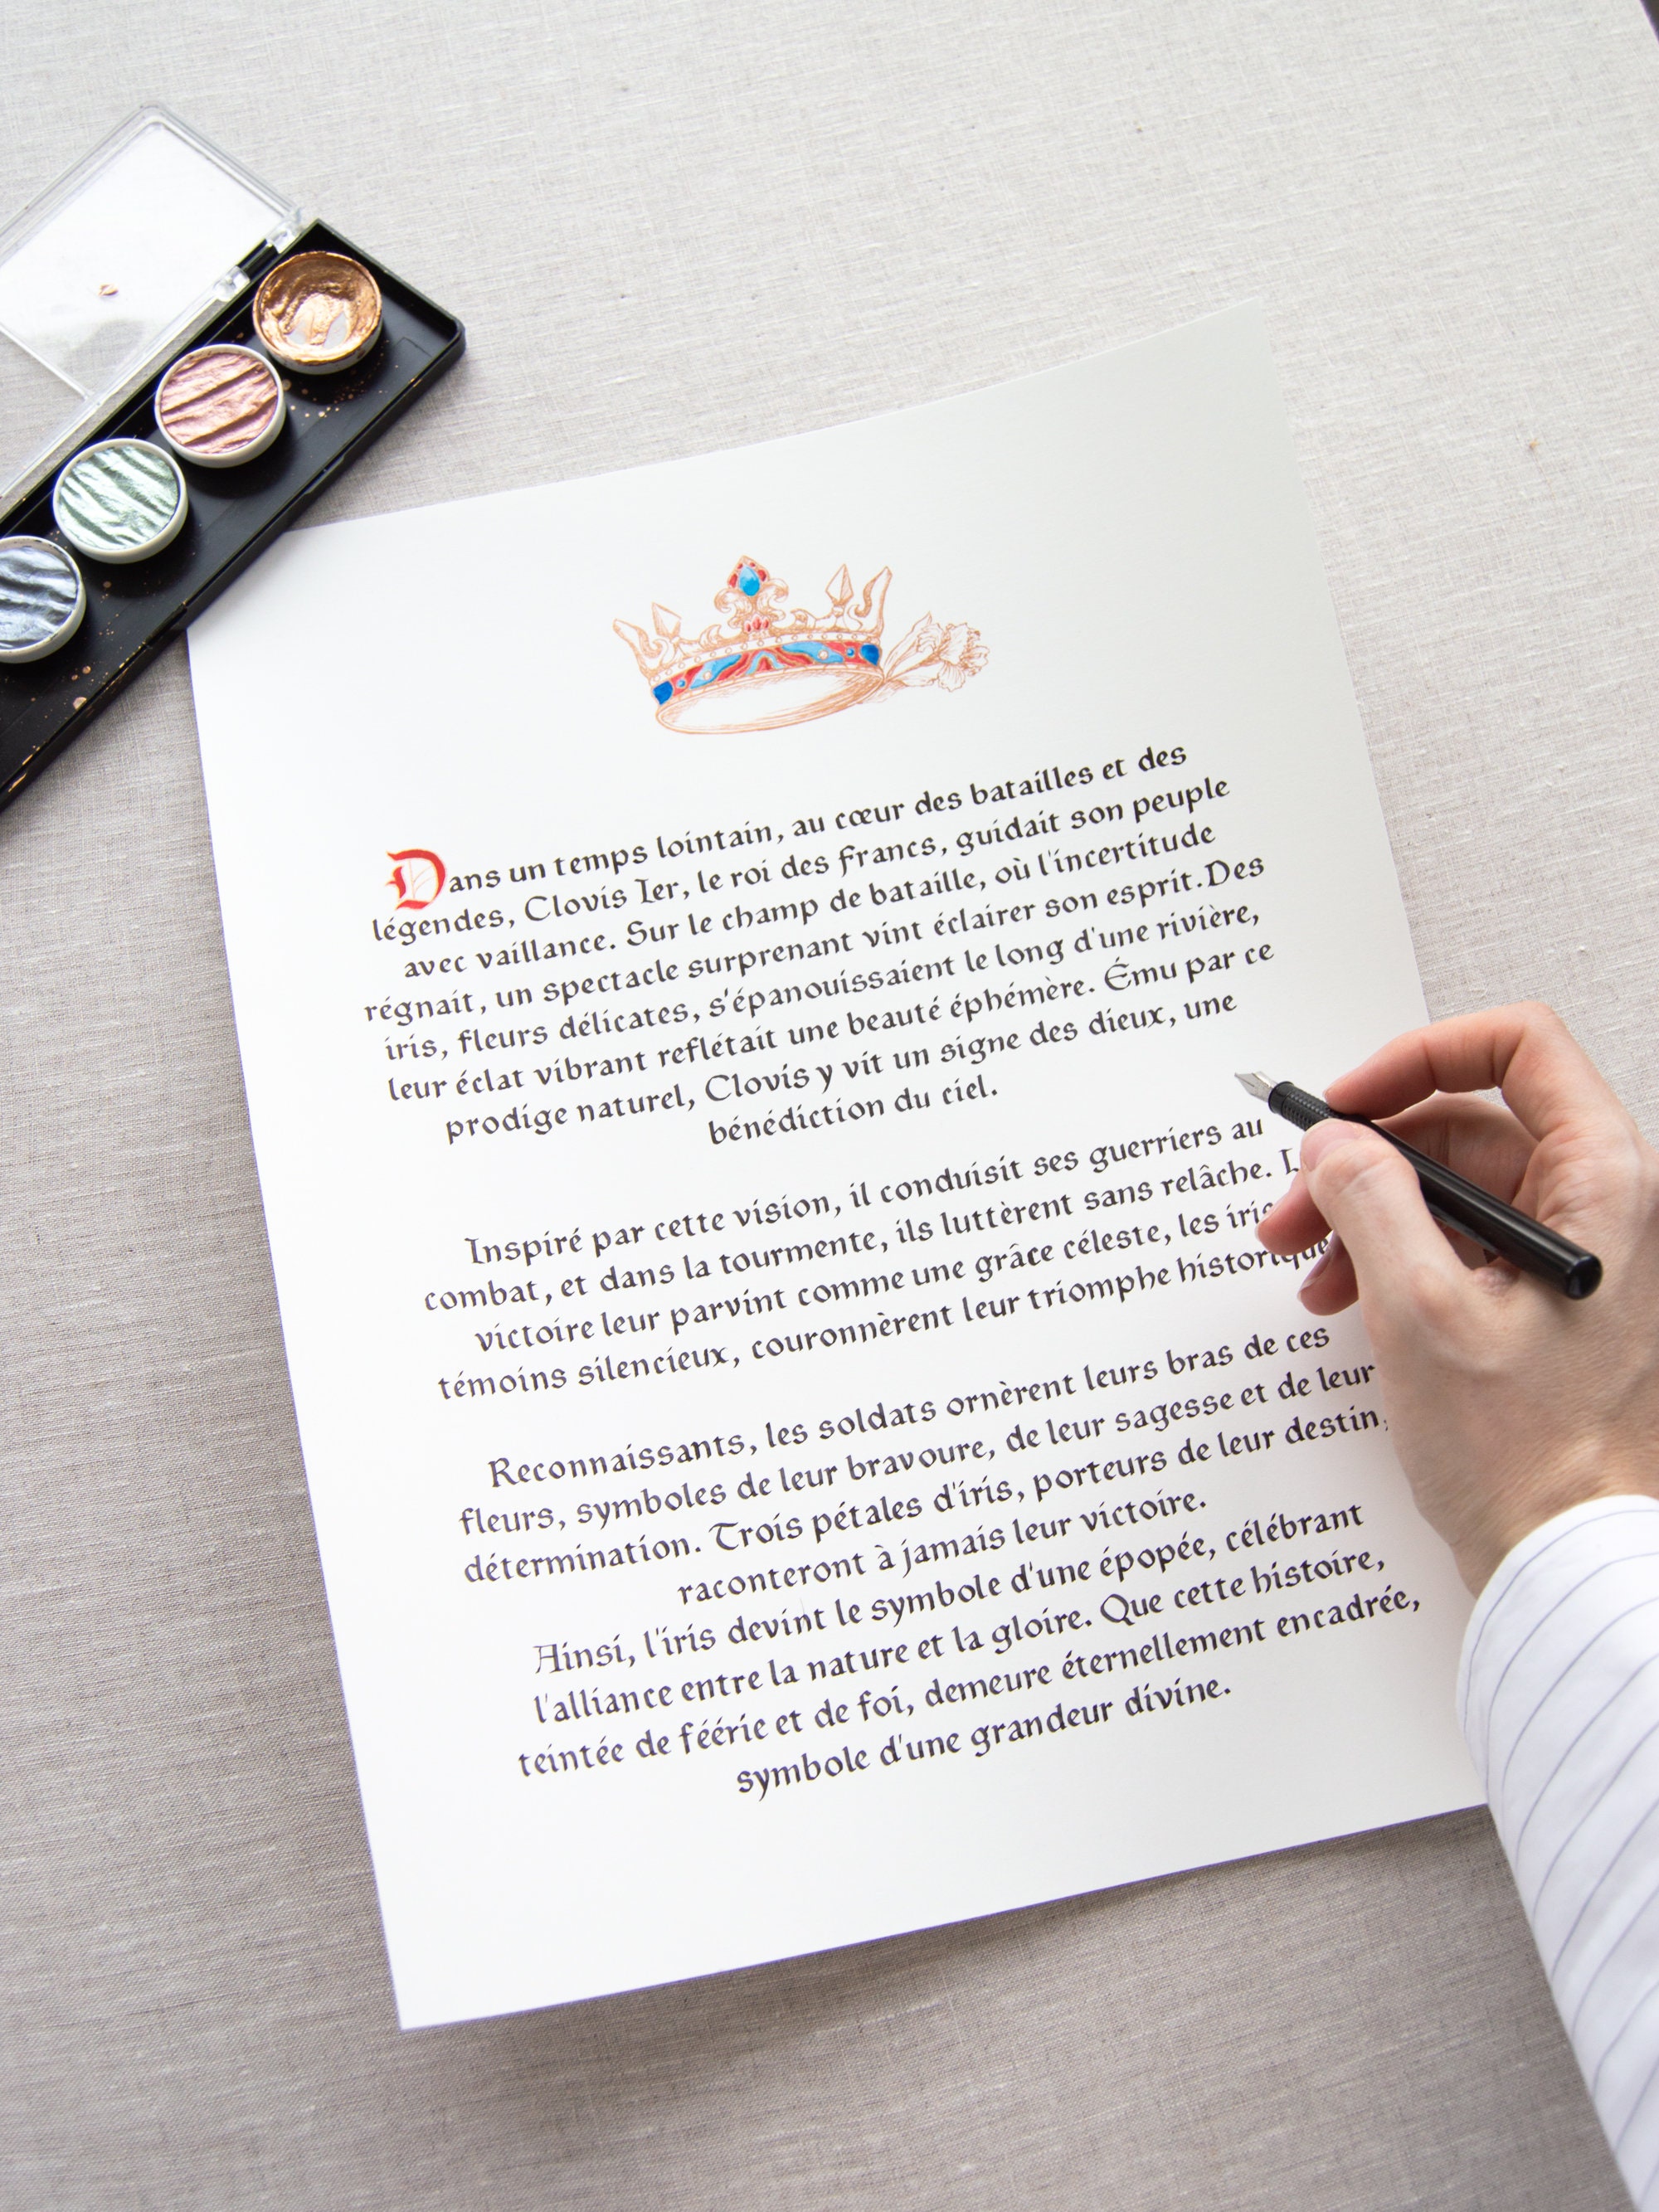 Dans un temps lointain, au cœur des batailles et des
légendes, Clovis Ier, le roi des Francs, guidait son peuple
avec vaillance. Sur le champ de bataille, où l'incertitude
régnait, un spectacle surprenant vint éclairer son esprit. Des
iris, fleurs délicates, s'épanouissaient le long d'une rivière,
leur éclat vibrant reflétait une beauté éphémère. Ému par ce
prodige naturel, Clovis y vit un signe des dieux, une
bénédiction du ciel.
Inspiré par cette vision, il conduisit ses guerriers au
combat, et dans la tourmente, ils luttèrent sans relâche.
victoire leur parvint comme une grâce céleste, les iris
témoins silencieux, couronnèrent leur triomphe historique
Reconnaissants, les soldats ornèrent leurs bras de ces
fleurs, symboles de leur bravoure, de leur sagesse et de leur
détermination. Trois pétales d'iris, porteurs de leur destin,
raconteront à jamais leur victoire.
Ainsi, l'iris devint le symbole d'une épopée, célébrant
l'alliance entre la nature et la gloire. Que cette histoire,
teintée de féérie et de foi, demeure éternellement encadrée,
symbole d'une grandeur divine.